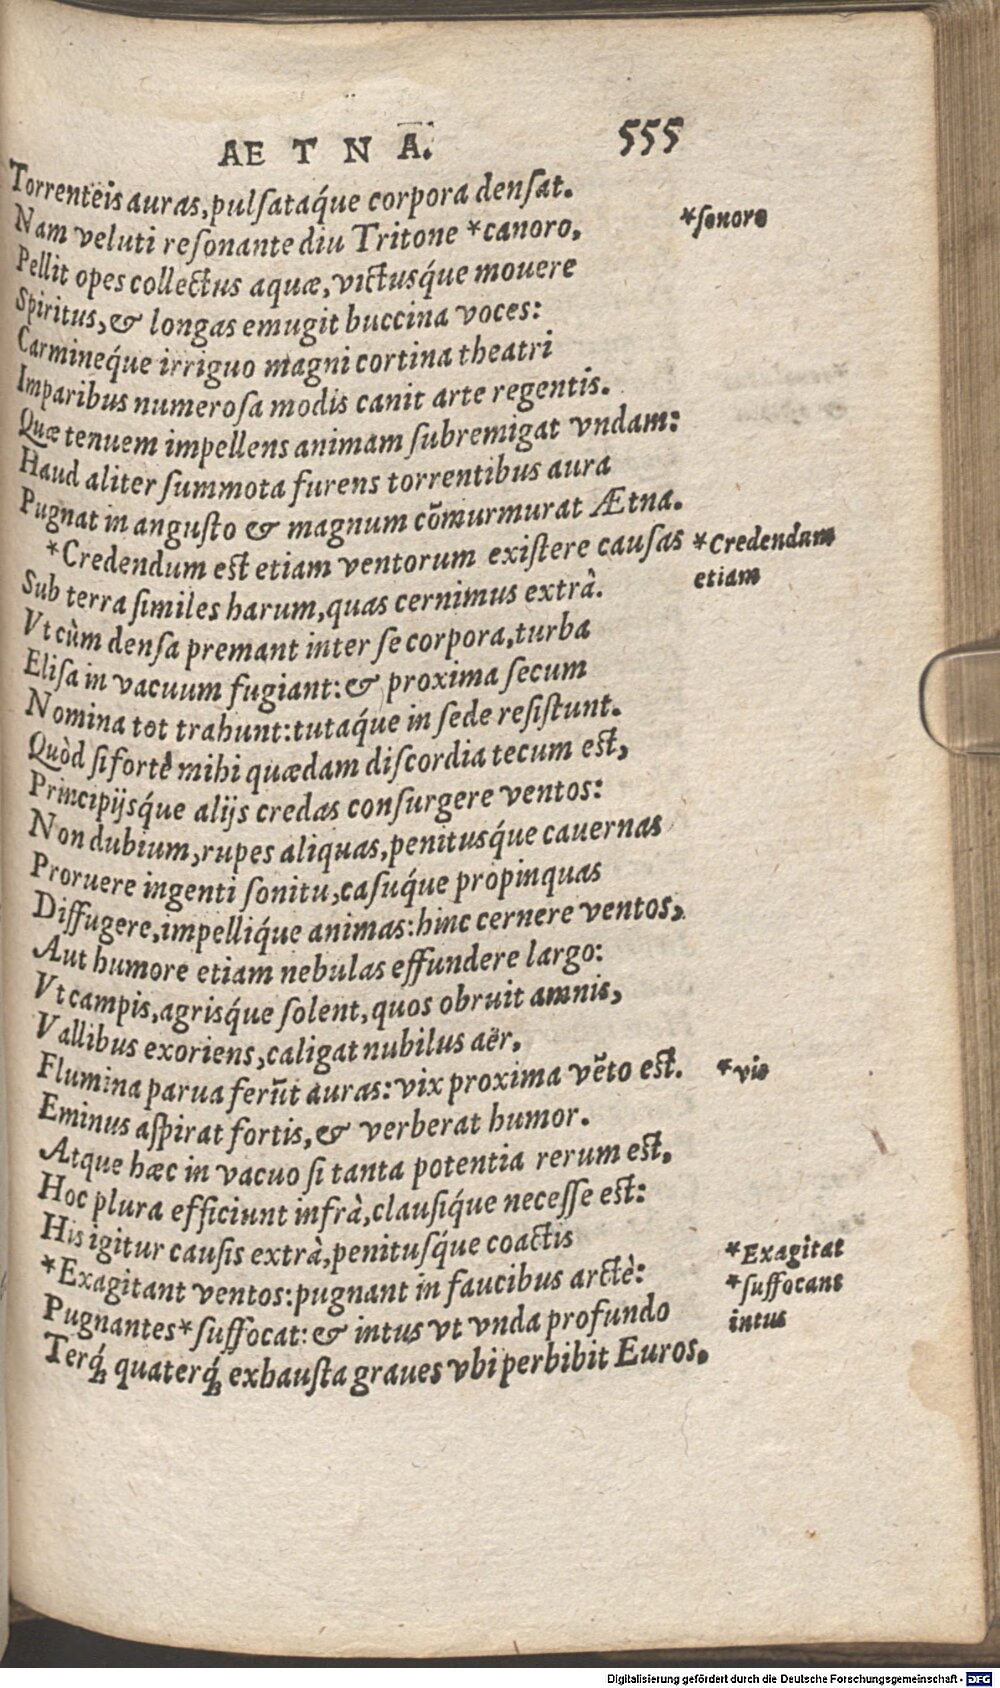 AETNA. 555
Torrenteis auras, pulsataq́ue corpora densat.
Nam veluti resonante diu Tritone *canoro, *sonoro
Pellit opes collectus aquæ, victusq́ue mouere
Spiritus, & longas emugit buccina voces:
Carmineq́ue irriguo magni cortina theatri
Imparibus numerosa modis canit arte regentis.
Quæ tenuem impellens animam subremigat vndam:
Haud aliter summota furens torrentibus aura
Pugnat in angusto & magnum cõmurmurat Ætna.
*Credendum est etiam ventorum existere causas *Credendum
Sub terra similes harum, quas cernimus extrà. etiam
Vt cùm densa premant inter se corpora, turba
Elisa in vacuum fugiant: & proxima secum
Nomina tot trahunt: tutaq́ue in sede resistunt.
Quòd si fortè mihi quædam discordia tecum est,
Principijsq́ue alijs credas consurgere ventos:
Non dubium, rupes aliquas, penitusq́ue cauernas
Proruere ingenti sonitu, casuq́ue propinquas
Diffugere, impelliq́ue animas: hinc cernere ventos,
Aut humore etiam nebulas effundere largo:
Vt campis, agrisq́ue solent, quos obruit amnis,
Vallibus exoriens, caligat nubilus aër,
Flumina parua ferũt auras: vix proxima vẽto est. *vis
Eminus aspirat fortis, & verberat humor.
Atque hæc in vacuo si tanta potentia rerum est,
Hoc plura efficiunt infrà, clausiq́ue necesse est:
His igitur causis extrà, penitusq́ue coactis
*Exagitant ventos: pugnant in faucibus arctè: *Exagitat
Pugnantes *suffocat: & intus vt vnda profundo *suffocant
intus
Terq́; quaterq́; exhausta graues vbi perbibit Euros,
Digitalisierung gefördert durch die Deutsche Forschungsgemeinschaft - DFG